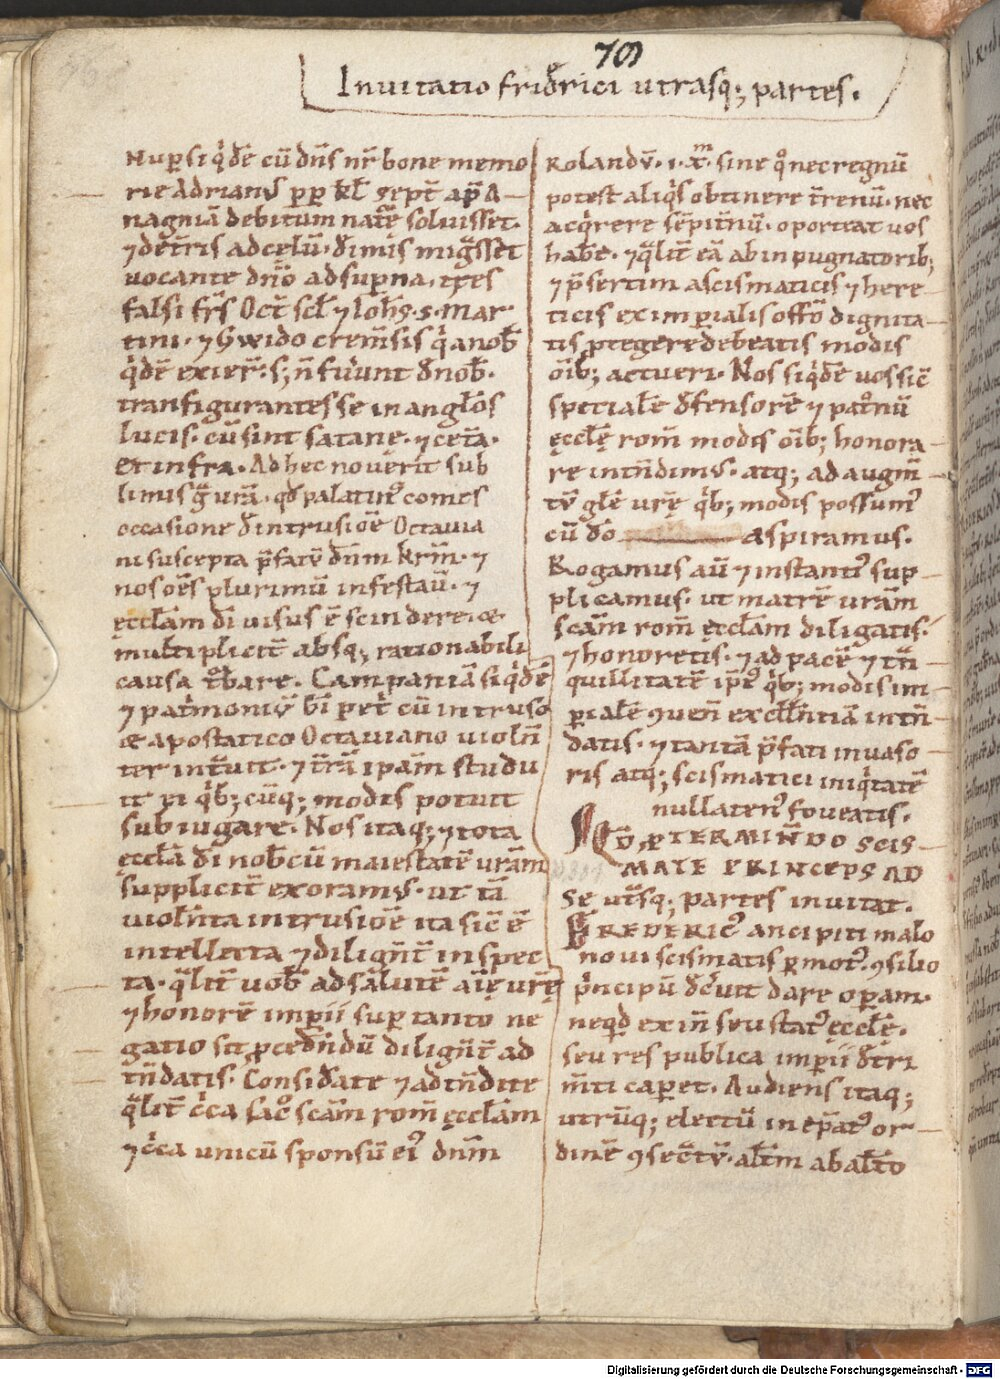 709
Inuitatio fridẽrici utrasq; partes.
Nup siq̓dẽ cũ dñs nr̃ bone memo
rie Adrianꝰ pp kl̃ sept̃ ap̃ A
nagniã debitum nat̃e soluisset.
⁊ de t̃ris ad celũ. d̓ imis migᷓsset
uocante dñõ ad sup̱na. t̃pes
falsi fr̃s Oct̃ scl̃ ⁊ Ioh̃s .s. Mar
tini. ⁊ Gwido crem̃sis q̓ a nob̃
q̓dẽ exier̃. s; ñ fuẽunt d̓ nob̃.
tranfigurantes se in angl̃os
lucis. cũ sint satanę. ⁊ cet̃a.
Et infra. Ad hec nouẽrit sub
limis gᷓ urã. qd̓ palatinꝰ comes
occasione d̓ intrusiõe Octauia
ni suscepta p̃fatũ dñm Krm̃. ⁊
nos oẽs plurimũ infestau̓. ⁊
ęccl̃am d̓i uisus ẽ scindere. æ
multiplicit̃ absq; rationabili
causa t̓bare. Campaniã siq̓dẽ
⁊ pat̓moniũ b̃i pet̓ cũ intruso
æ apostatico Octauiano uiolñ
ter int̃uit. ⁊ t̃rã ipam̃ studu
it ei q̓b; cũq; modis potuit
subiugare. Nos itaq; ⁊ tota
ęccl̃a d̓i nob̃cũ maiestatẽ urãm
supplicit̃ exoramꝰ. ut tã
uiolñta intrusiõe ita sic̃ ẽ
intellecta ⁊ diligñt̃ inspec
ta. qᷓlit̃ uob̃ ad salutẽ aĩę urę̃
⁊ honorẽ imp̱ii sup tanto ne
gatio sit p̱cedñdũ diligñt̃ ad
tñdatis. Consid̓ate ⁊ adtñdite
qᷓlit̃ c̓ca sac̃ scãm rom̃ ęccl̃am
⁊ c̓ca unicũ sponsũ eiꝰ dñm
Rolandũ .i. xᵐ. sine qͦ nec regnũ
potest aliq̓s obtinere t̃renũ. nec
acq̓rere sẽpit̃nũ. oporteat uos
hab̃e. ⁊ qᷓlit̃ eã ab inpugnatorib;
⁊ p̃sertim a scismaticis ⁊ here
ticis ex imp̱ialis offõ dignita
tis p̱tegere debeatis modis
oĩb; ac tueri. Nos siq̓dẽ uos sic̃
spetial̃e d̓fensorẽ ⁊ pat̓nũ
ęccl̃ę rom̃ modis oĩb; honora
re intñdimꝰ. atq; ad augm̃
tũ gl̃e urę̃ q̓b; modis possumꝰ
cũ d̓o aspiramus.
Rogamus aũ ⁊ instantiꝰ sup
plicamus. ut matrẽ urãm
scãm rom̃ ęccl̃am diligatis.
⁊ honoretis. ⁊ ad pacẽ ⁊ tᷓn
quillitatẽ ipiꝰ q̓b; modis im
p̱ialẽ ꝯuen̓ excell̃ntiã intñ
datis. ⁊ tantã p̃fati inuaso
ris atq; scismatici iniq̓tatẽ
nullatenꝰ foueatis.
Qđ p TERMINÃDO SCIS
MATE PRINCEPS AD
Se ut̃sq; partes inuitat.
FREDERICꝰ ancipiti malo
noui scismatis p̱motꝰ. ꝯsilio
p̓ncipũ d̓c̓uit dare op̱am.
neqd̓ ex iñ seu statꝰ ęccl̃ę.
seu res publica imp̱ii d̓tri
m̃ti cap̱et. Audiens itaq;
utrũq; electũ in ep̃atꝰ or
dinẽ ꝯsec̃tũ. alt̃m ab alt̃o
Digitalisierung gefördert durch die Deutsche Forschungsgemeinschaft - DFG